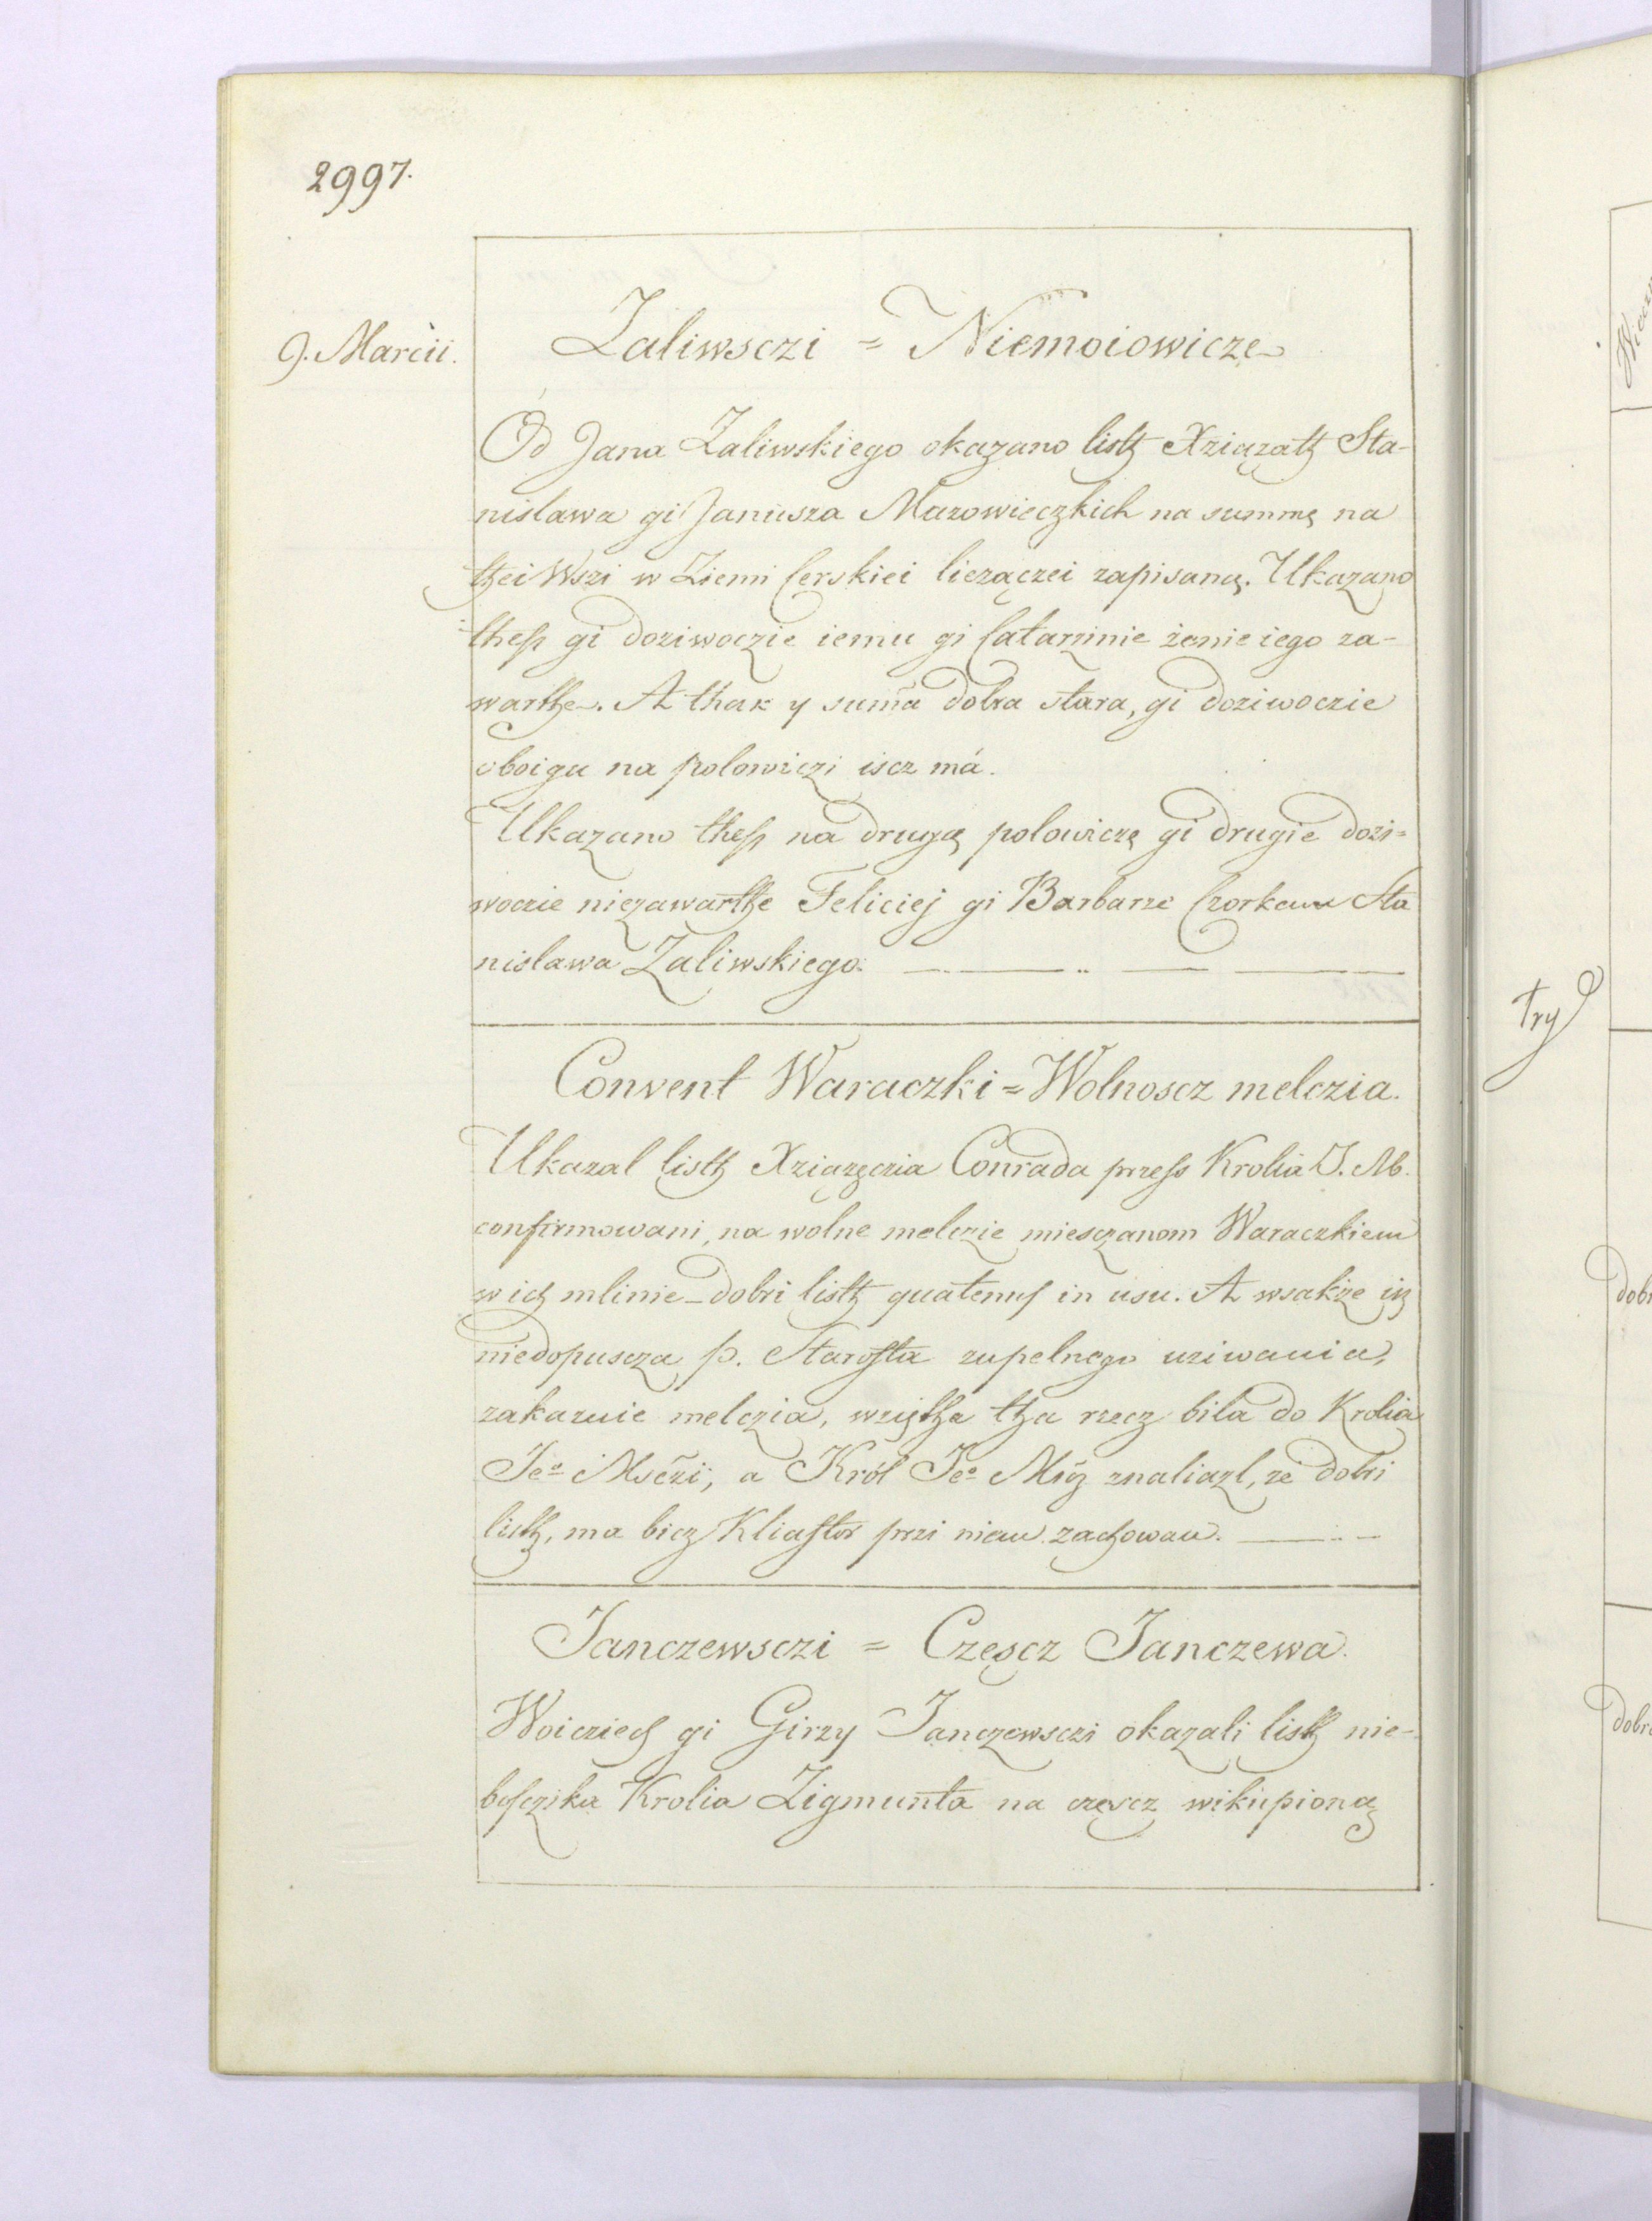 2997.
9. Marcii.
Zaliwsczi = Niemoiowicze
Od Jana Zaliwskiego okazano listh Xziązath Sta-
nislawa gi Janusza Mazowieczkich na summę na
thei Wszi w Ziemi Cerskiei liezączei zapisaną. Ukazano
thesz gi doziwoczie iemu gi Catarzinie żenie iego za-
warthe. A thak y suma dobra stara, gi doziwoczie
oboigu na polowiczi iscz má.
Ukazano thesz na drugą polowiczę gi drugie dozi-
woczie niezawarthe Feliciej gi Barbarze Czorkam Sta
nislawa Zaliwskiego.
Convent Waraczki = Wolnoscz melczia.
Ukazal listh Xziązęczia Conrada przess Krolia J. M.
confirmowani, na wolne melczie miesczanom Waraczkiem
w ich mlinie dobri listh quatenus in usu. A wsakże iz
niedopuscza p. Starosta zupelnego uziwania,
zakazuie melczia, wziętha tha rzecz bila do Krolia
Jeo Mśczi, a Król Jeo Mśz znaliazl, ze dobri
listh, ma bicz Kliastor przi niem zachowan.
Janczewsczi = Częscz Janczewa.
Woicziech gi Girzy Janczewsczi okazali listh nie-
bosczika Krolia Zigmunta na częscz wikupioną
try
dobr
dobr